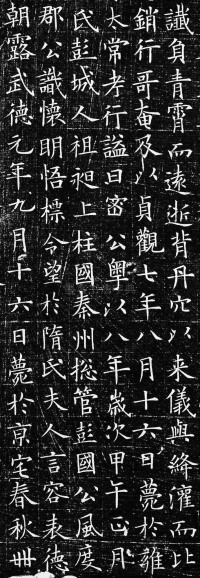 讖負青霄而遠逝背丹穴以來儀與絳灌而比
銷行哥奄及以貞觀七年八月十六日薨於雍
太常考行謚曰密公粵以八年歲次甲午正月
氏彭城人祖昶上柱國秦州揔管彭國公風度
郡公識懷明悟標令望於隋氏夫人言容表德
朝露武德元年九月十六日薨於京宅春秋卌